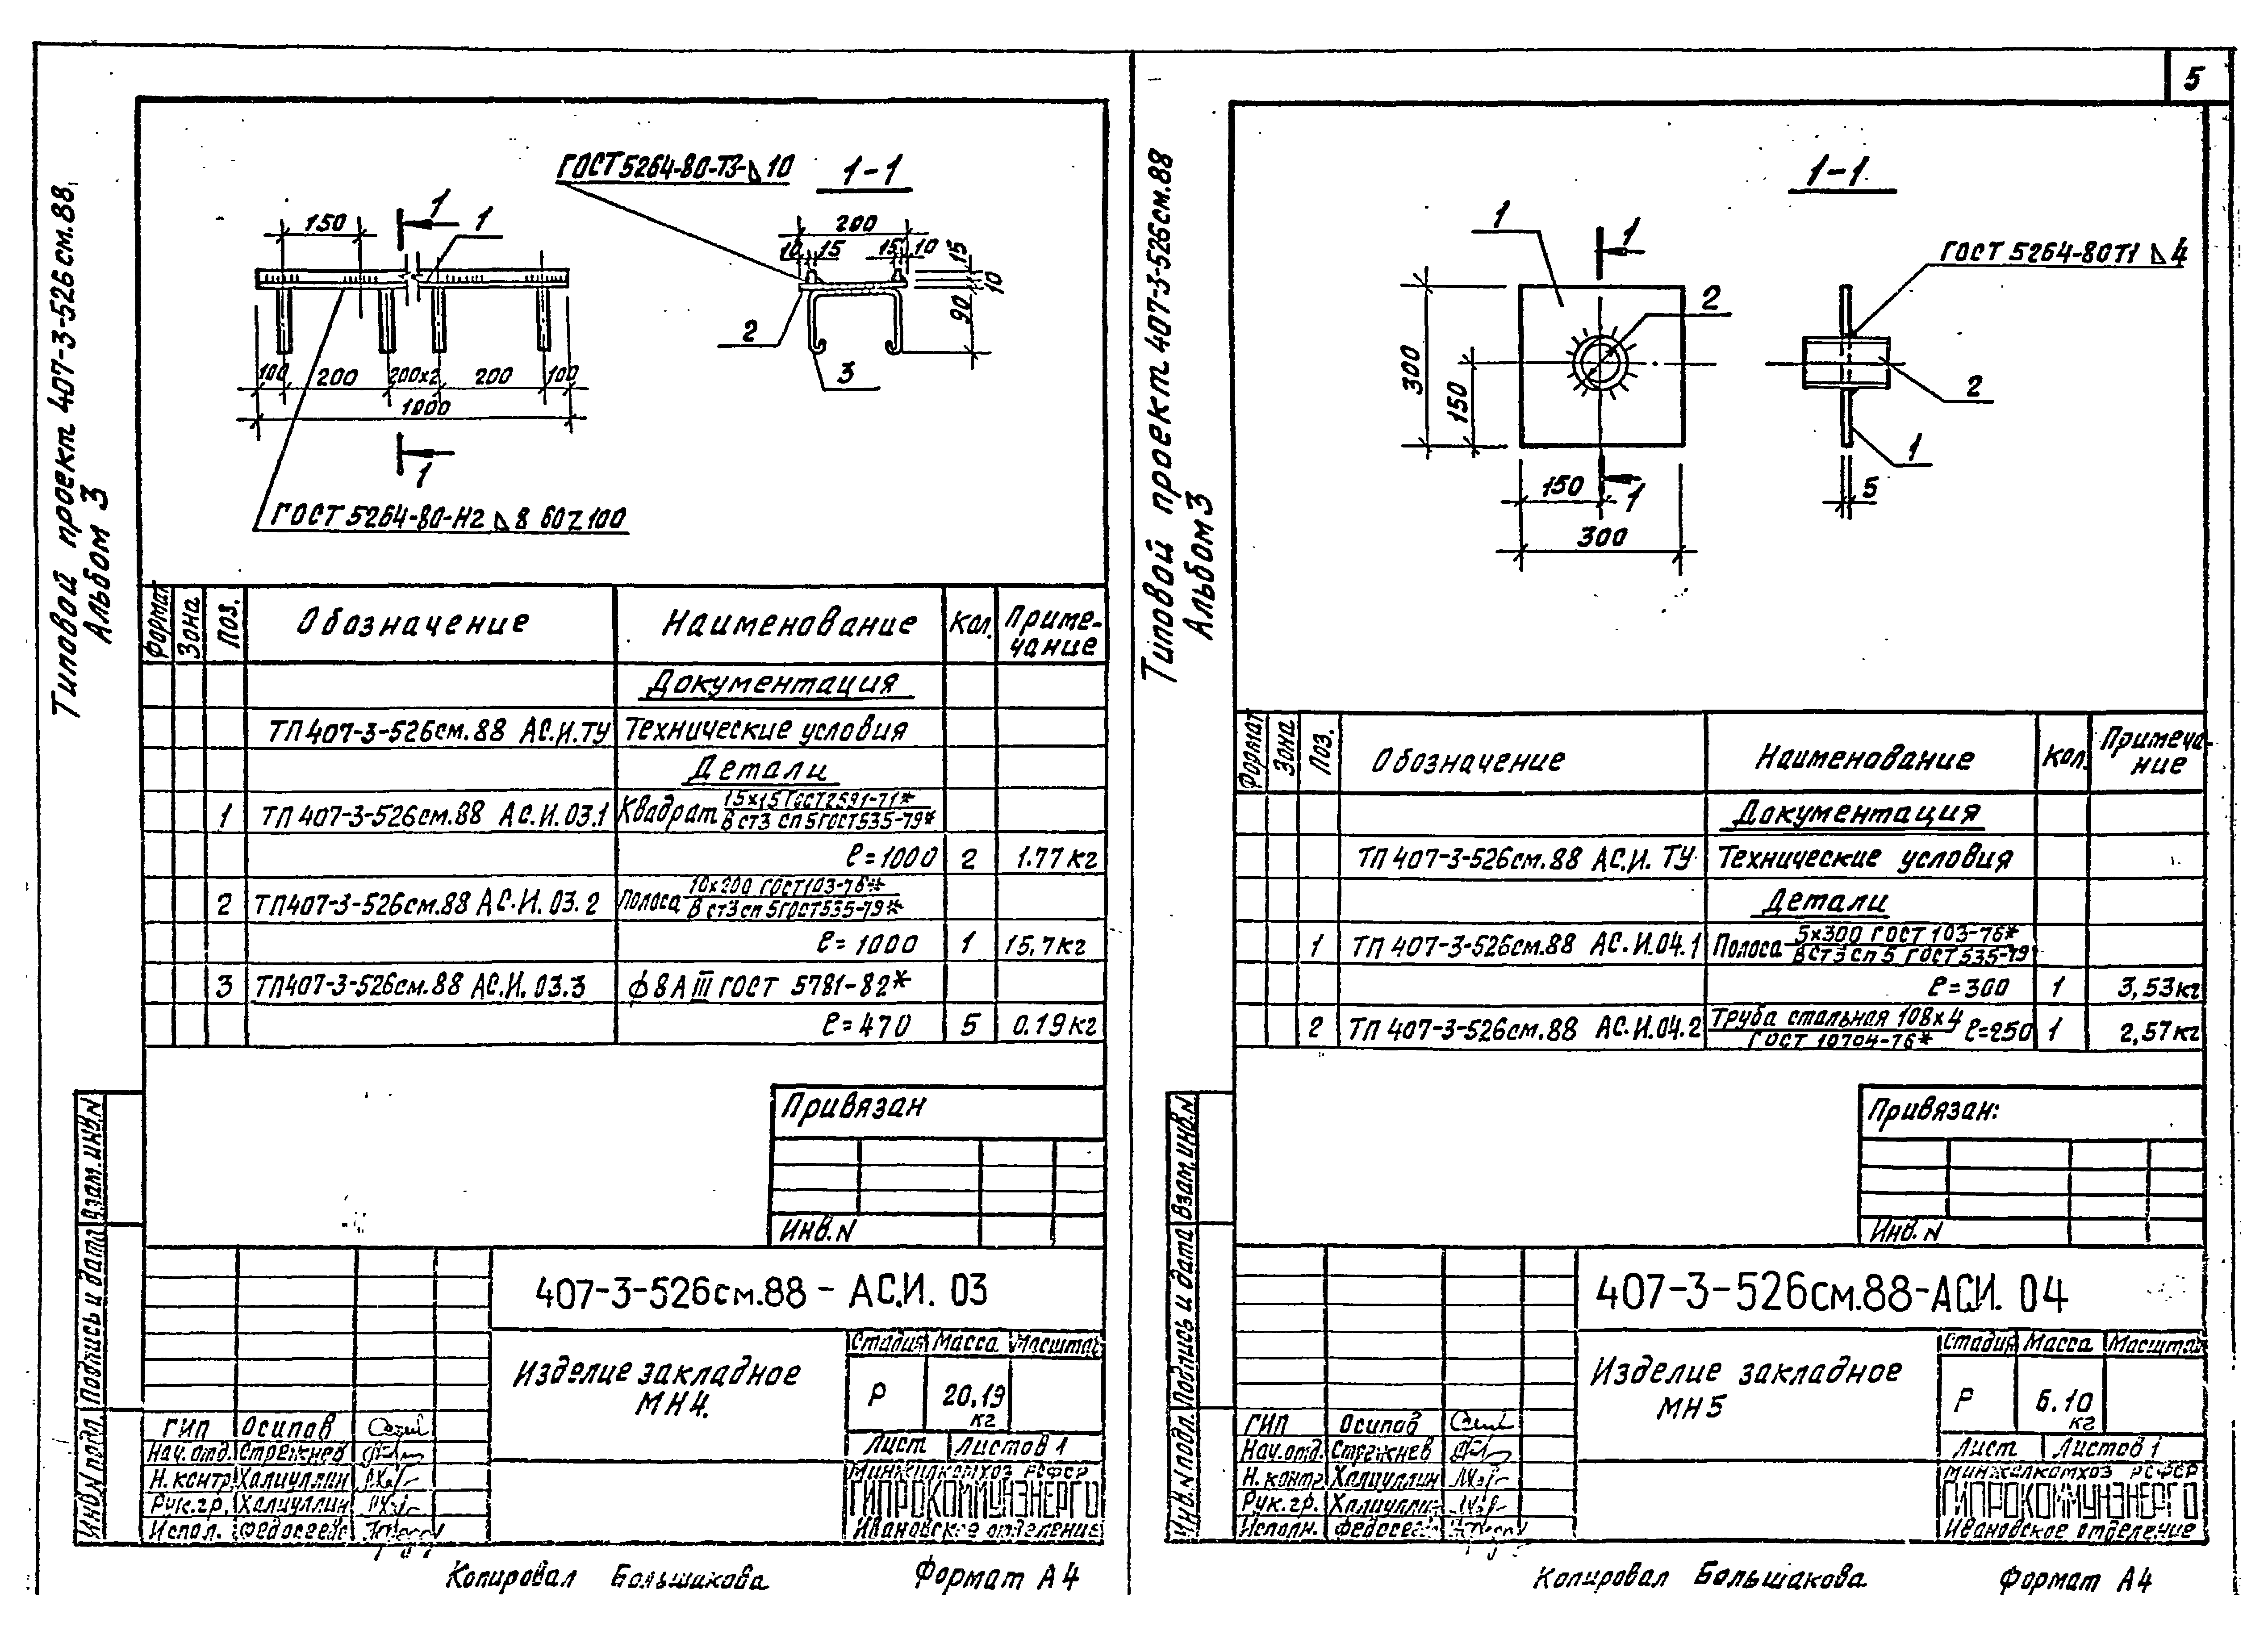 5
Типовой проект 407-3-526см.88
Альбом 3
ГОСТ 5264-80-Т3-△10
1-1
150
1
1
200
10
15
15
10
15
10
90
2
3
100
200
200х2
200
100
1000
1
ГОСТ 5264-80-Н2 △8 60Z100
Формат
Зона
Поз.
Обозначение
Наименование
Кол.
Приме-
чание
Документация
ТП 407-3-526см.88 АС.И.ТУ Технические условия
Детали
1 ТП 407-3-526см.88 АС.И.03.1 Квадрат 15х15 ГОСТ 2591-71*
В СТ3 СП 5 ГОСТ 535-79*
ℓ=1000 2 1.77кг
2 ТП 407-3-526см.88 АС.И.03.2 Полоса 10х200 ГОСТ 103-76*
В СТ3 сп 5 ГОСТ 535-79*
ℓ=1000 1 15,7кг
3 ТП 407-3-526см.88 АС.И.03.3 ф8АIII ГОСТ 5781-82*
ℓ=470 5 0.19кг
Привязан
Инв.N
Взам.инв.N
Подпись и дата
Инв.N подл.
407-3-526см.88 - АС.И. 03
Изделие закладное
МН4.
Стадия Масса Масштаб
Р 20,19
кг
Лист Листов 1
Минжилкомхоз РСФСР
ГИПРОКОММУНЭНЕРГО
Ивановское отделение
ГИП Осипов
Нач.отд. Стрежнев
Н.контр Халиуллин
Рук.гр. Халиуллин
Испол.
Копировал Большакова Формат А4
Типовой проект 407-3-526см.88
Альбом 3
1-1
1
1
2
ГОСТ 5264-80Т1 △4
300
150
2
1
150
1
5
300
Формат
Зона
Поз.
Обозначение
Наименование
Кол.
Примеча-
ние
Документация
ТП 407-3-526см.88 АС.И. ТУ Технические условия
Детали
1 ТП 407-3-526см.88 АС.И.04.1 Полоса 5х300 ГОСТ 103-76*
В СТ3 сп 5 ГОСТ 535-79
ℓ=300 1 3,53кг
2 ТП 407-3-526см.88 АС.И.04.2 Труба стальная 108х4 ℓ=250 1 2,57кг
ГОСТ 10704-76*
Привязан:
Инв.N
Взам.инв.N
Подпись и дата
Инв.N подл.
407-3-526см.88-АС.И. 04
Изделие закладное
МН5
Стадия Масса Масштаб
Р 6.10
кг
Лист Листов 1
Минжилкомхоз РСФСР
ГИПРОКОММУНЭНЕРГО
Ивановское отделение
ГИП Осипов
Нач.отд. Стрежнев
Н.контр Халиуллин
Рук.гр. Халиуллин
Исполн.
Копировал Большакова Формат А4